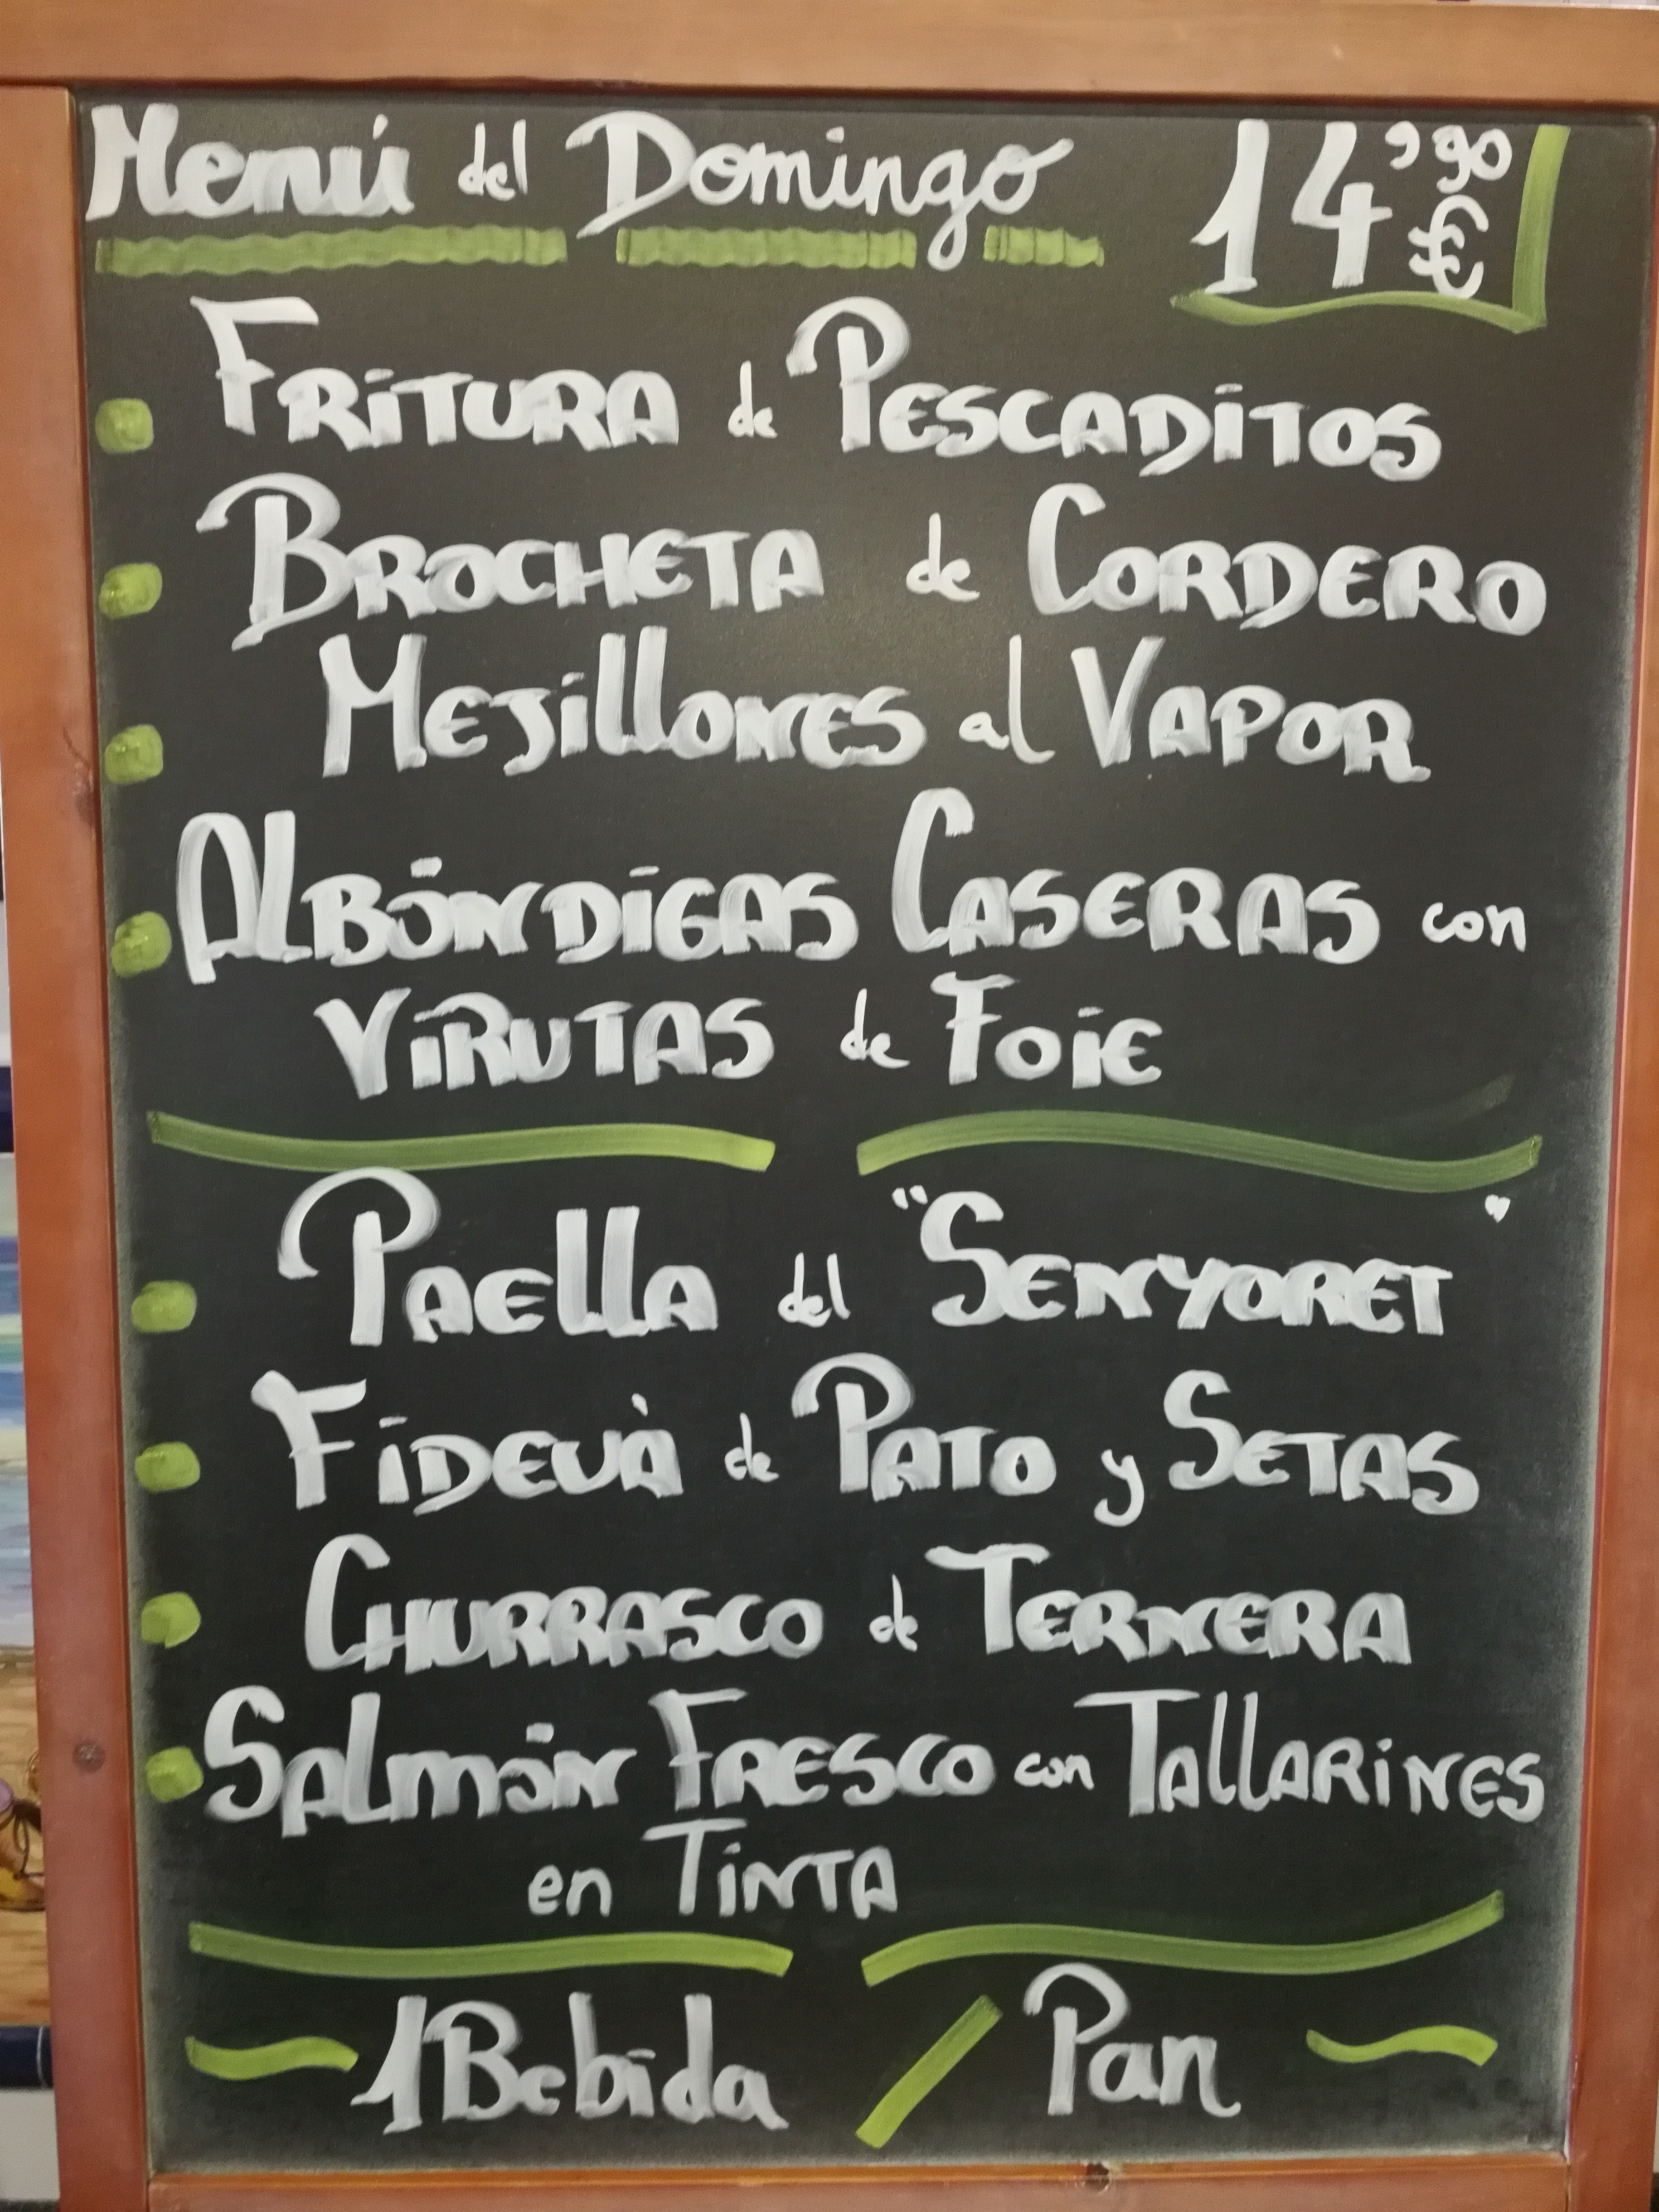 Menú del Domingo 14'90 €
FRITURA de PESCADITOS
BROCHETA de CORDERO
MEJILLONES al VAPOR
ALBÓNDIGAS CASERAS con
VIRUTAS de FOIE
PAELLA del "SENYORET"
FIDEUÀ de PATO y SETAS
CHURRASCO de TERNERA
SALMÓN FRESCO con TALLARINES
en TINTA
1 Bebida / Pan